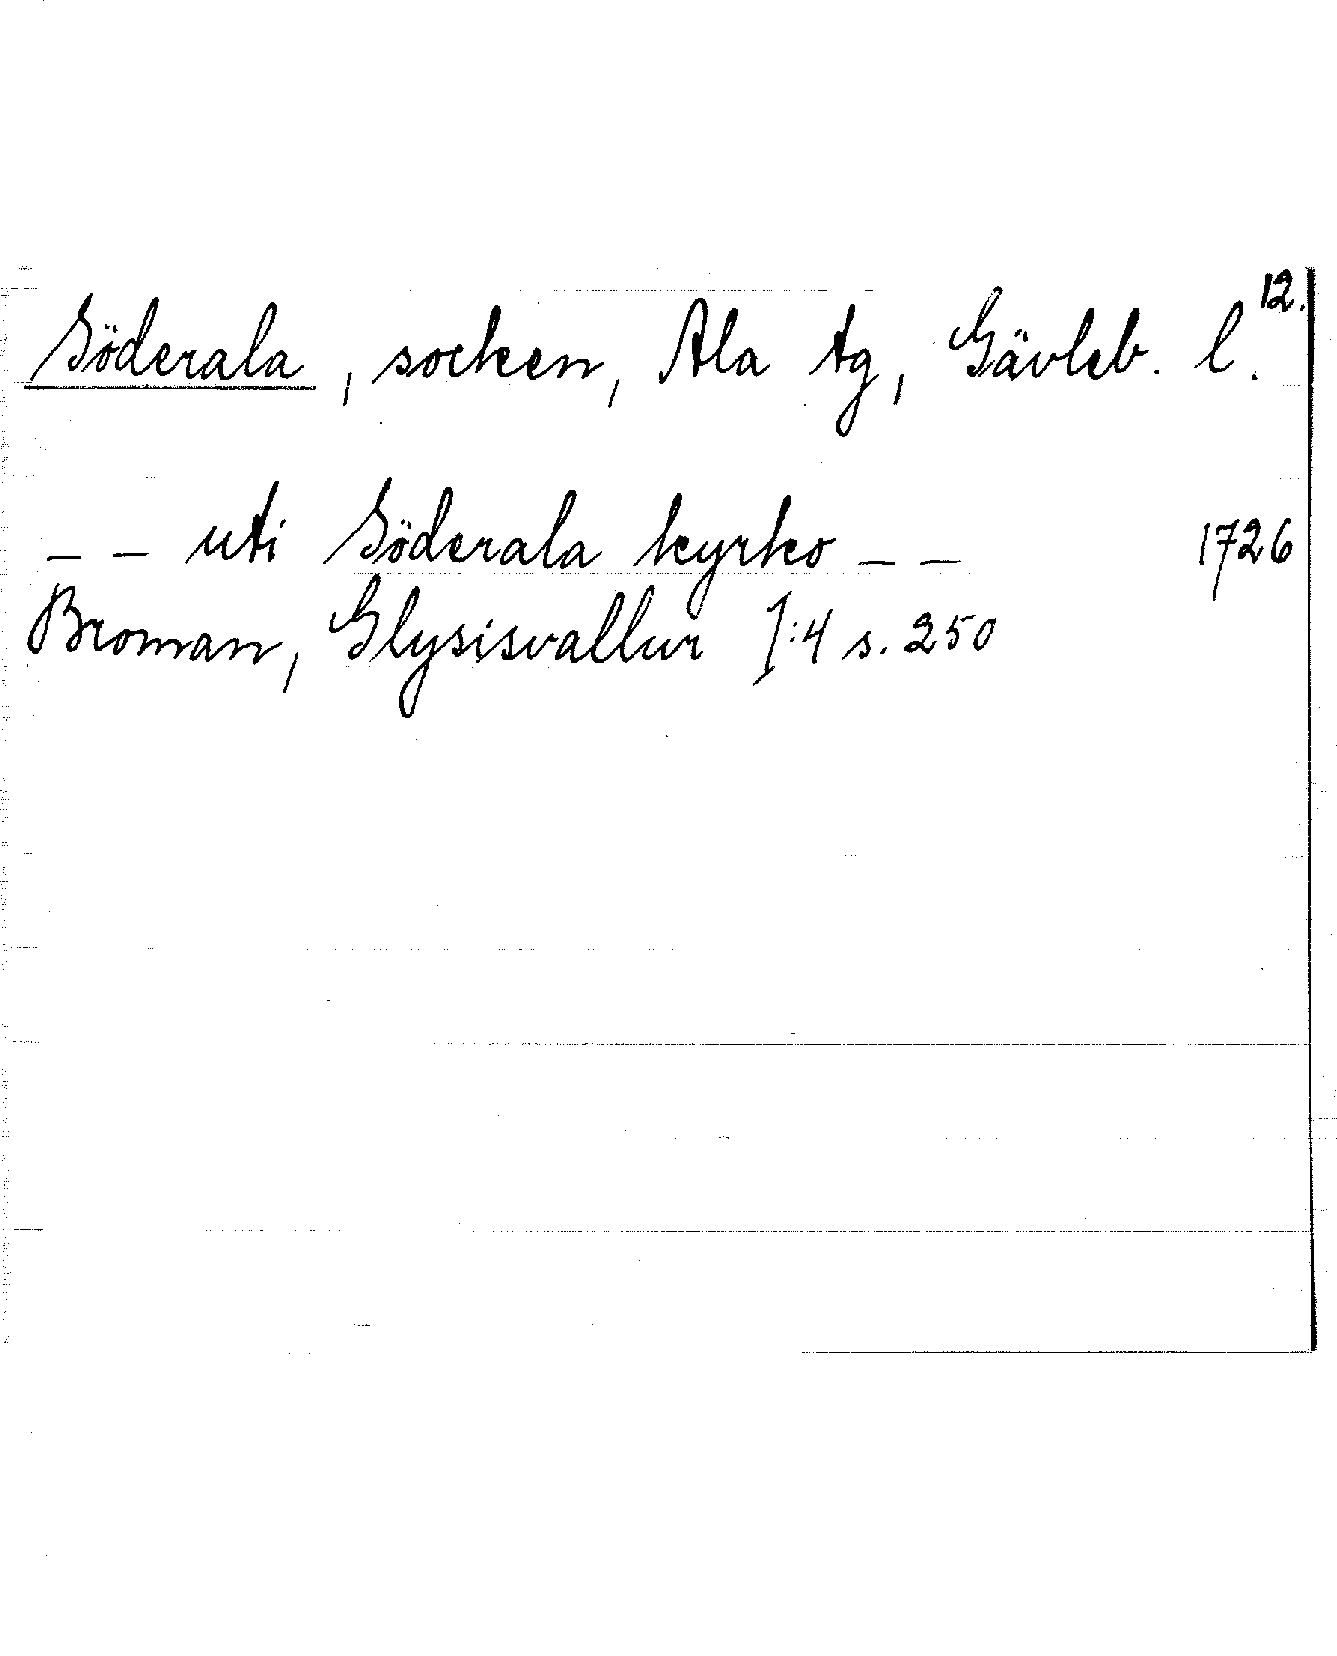 12.
Söderala, socken, Ala tg, Gävleb. l.
_ _ uti Söderala kyrko _ _ 1726
Broman, Glysisvallur I:4 s. 250